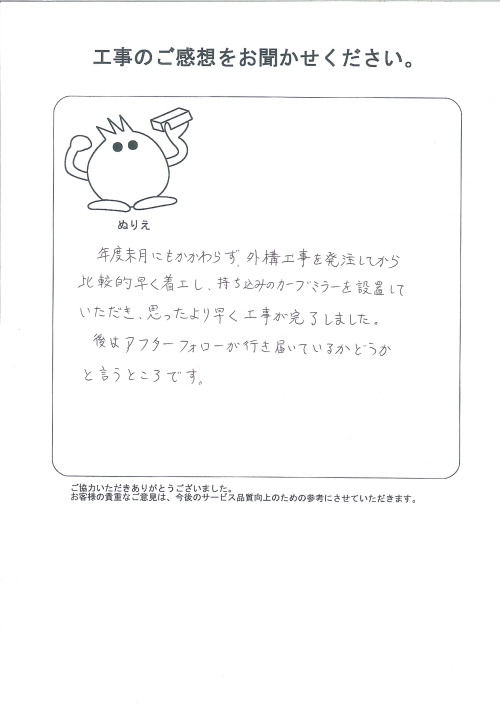 工事のご感想をお聞かせください。
ぬりえ
年度末月にもかかわらず、外構工事を発注してから
比較的早く着工し、持ち込みのカーブミラーを設置して
いただき、思ったより早く工事が完了しました。
後はアフターフォローが行き届いているかどうか
と言うところです。
ご協力いただきありがとうございました。
お客様の貴重なご意見は、今後のサービス品質向上のための参考にさせていただきます。